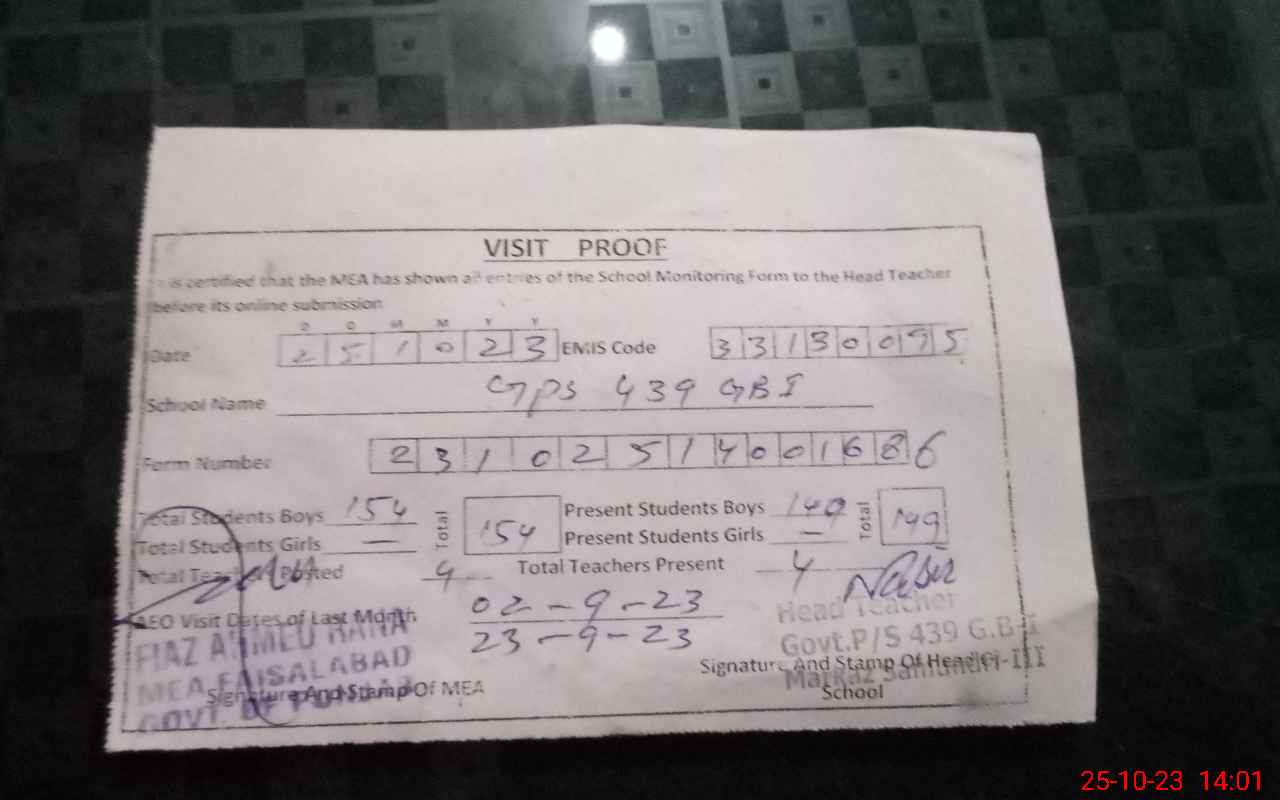 VISIT PROOF
is certified that the MEA has shown all entries of the School Monitoring Form to the Head Teacher
before its online submission
D D M M Y Y
Date 2 5 1 0 2 3 EMIS Code 3 3 1 3 0 0 9 5
School Name GPS 439 GB I
Form Number 2 3 1 0 2 5 1 4 0 0 1 6 8 6
Total Students Boys 154 Total 154 Present Students Boys 149 Total 149
Total Students Girls — Present Students Girls —
Total Teachers Posted 4 Total Teachers Present 4
AEO Visit Dates of Last Month 02-9-23
23-9-23
Nasir
Head Teacher
Govt.P/S 439 G.B-I
Markaz Samundri-III
FIAZ AHMED RANA
MEA FAISALABAD
GOVT. OF PUNJAB
Signature And Stamp Of MEA
Signature And Stamp Of Head
School
25-10-23 14:01